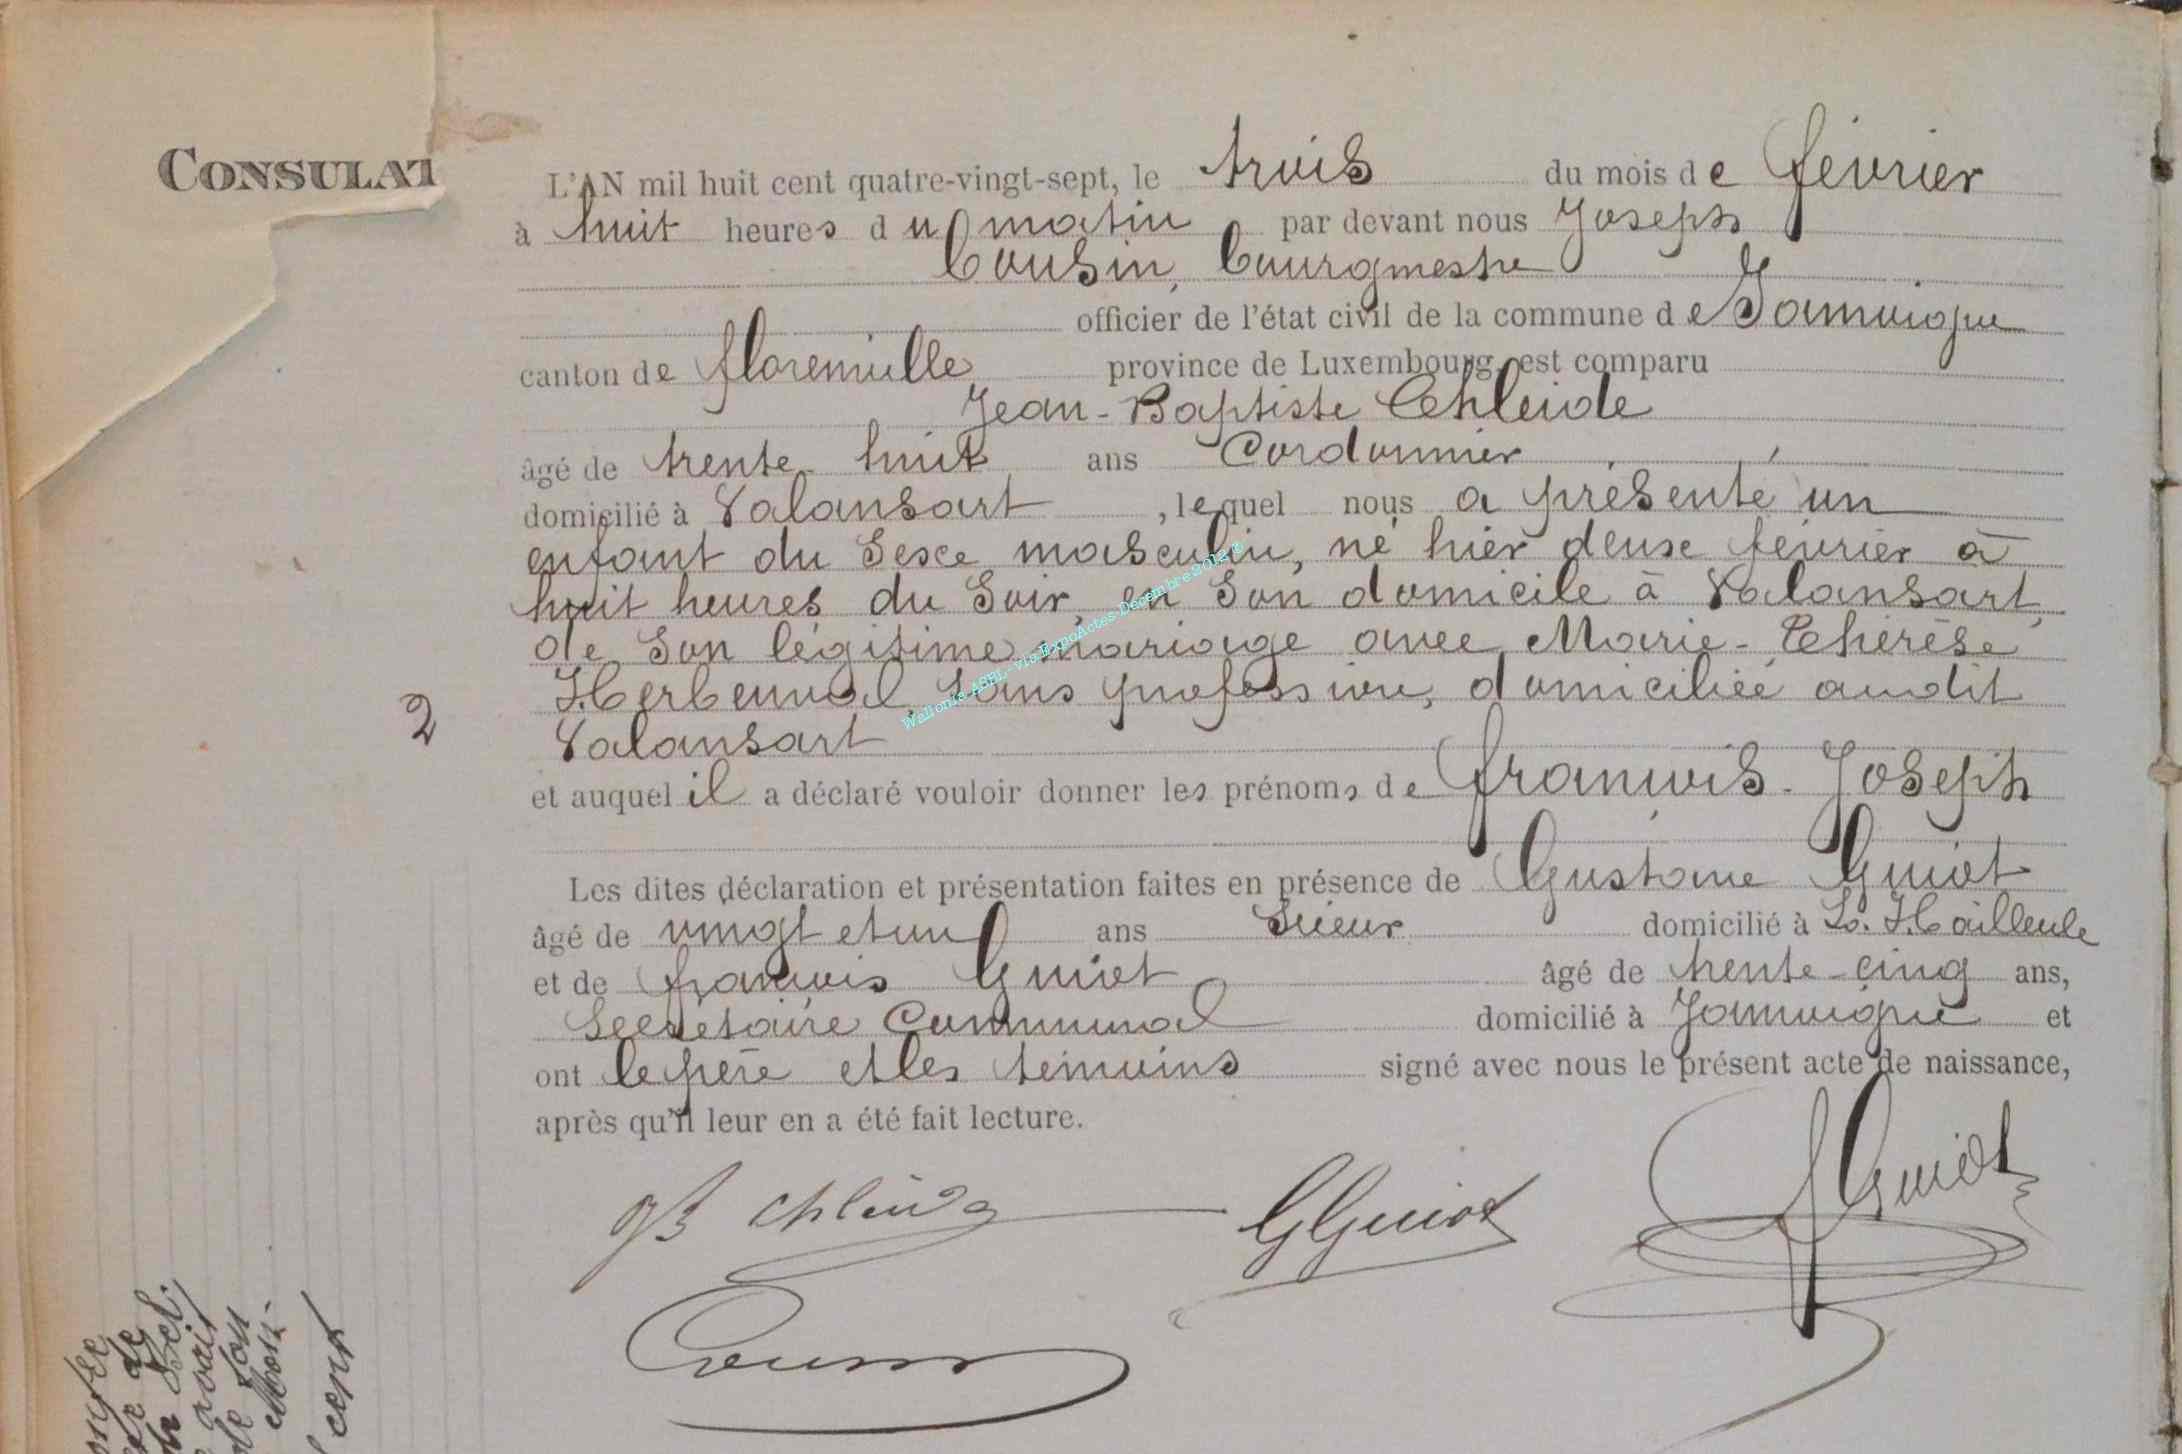 CONSULAT
L'AN mil huit cent quatre-vingt-sept, le trois du mois de février
à huit heures du matin par devant nous Joseph
Cousin, bourgmestre
officier de l'état civil de la commune de Jamoigne
canton de florenville province de Luxembourg, est comparu
Jean-Baptiste Chleide
âgé de trente huit ans Cordonnier
domicilié à Valansart, lequel nous a présenté un
enfant du Sexe masculin, né hier deux février à
huit heures du Soir, en Son domicile à Valansart,
de Son légitime mariage avec Marie-Thérèse
Herbeuval, Sans profession, domiciliée audit
2 Valansart
et auquel il a déclaré vouloir donner les prénoms de françois-Joseph
Les dites déclaration et présentation faites en présence de Gustave Guiot
âgé de vingt et un ans Scieur domicilié à La Hailleule
et de françois Guiot âgé de trente-cinq ans,
Secrétaire Communal domicilié à Jamoigne et
ont le père et les témoins signé avec nous le présent acte de naissance,
après qu'il leur en a été fait lecture.
JB Chleide GGuiot fGuiot
Cousin
Wallonie ASBL via ExpoActes Décembre 2012